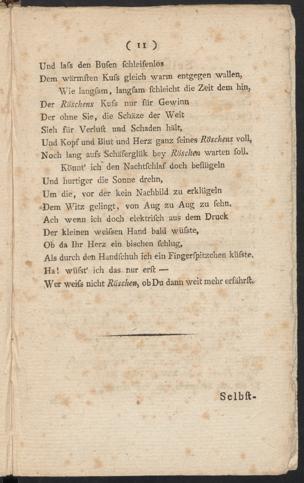 ( 11 )
Und laſs den Buſen ſchleifenlos
Dem wärmſten Kuſs gleich warm entgegen wallen,
Wie langſam, langſam ſchleicht die Zeit dem hin,
Der Röschens Kuſs nur für Gewinn
Der ohne Sie, die Schäze der Welt
Sich für Verluſt und Schaden hält,
Und Kopf und Blut und Herz ganz ſeines Röschens voll,
Noch lang aufs Schäferglük bey Röschen warten ſoll.
Könnt' ich den Nachtſchlaf doch beflügeln
Und hurtiger die Sonne drehn,
Um die, vor der kein Nachbild zu erklügeln
Dem Witz gelingt, von Aug zu Aug zu ſehn.
Ach wenn ich doch elektriſch aus dem Druck
Der kleinen weiſſen Hand bald wüſste,
Ob da Ihr Herz ein bischen ſchlug,
Als durch den Handſchuh ich ein Fingerſpitzchen küſste,
Ha! wüſst' ich das nur erſt —
Wer weiſs nicht Röschen, ob Du dann weit mehr erfährſt.
Selbſt-